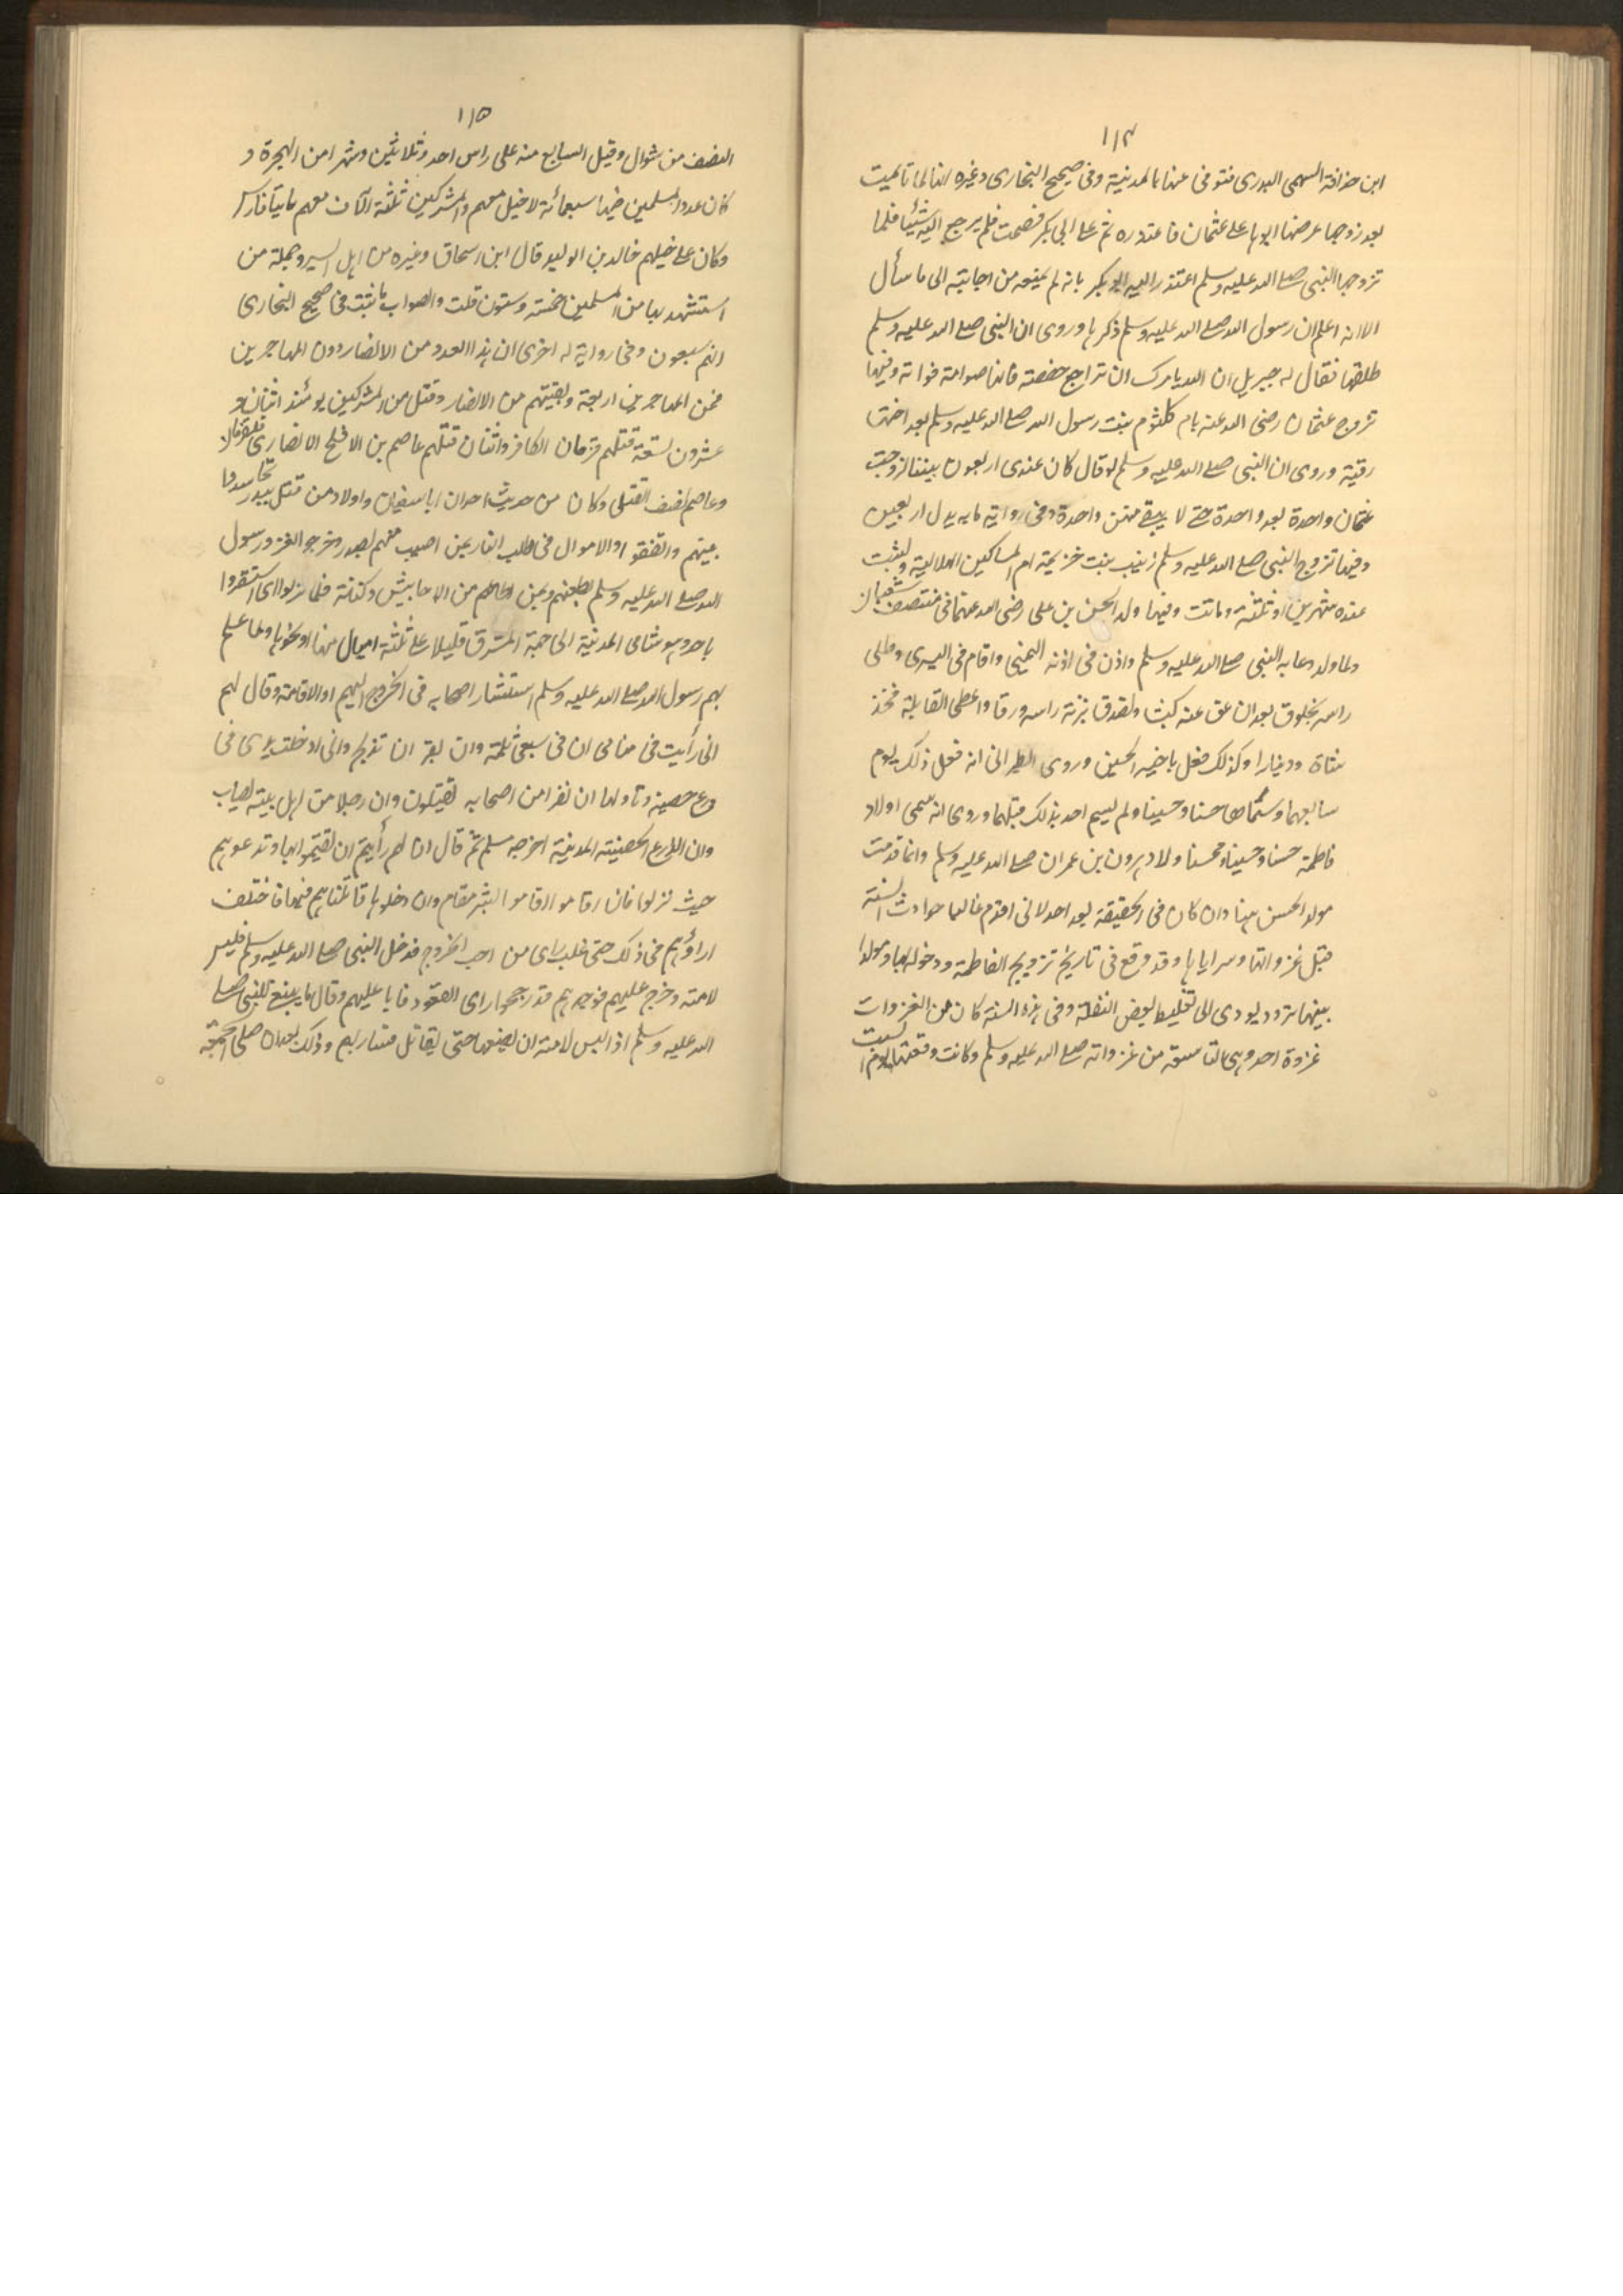 ١١٤
ابن حذافة السهمى البدرى فتوفى عنها بالمدينة وفى صحيح البخارى وغيره انها لما تأيمت
بعد زوجها عرضها ابوها على عثمان فاعتذره ثم على ابى بكر فصمت فلم يرجع اليه شيئا فلما
تزوجها النبى صلى الله عليه وسلم اعتذر اليه ابو بكر بانه لم يمنعه من اجابته الى ما سأل
الا انه اعلم ان رسول الله صلى الله عليه وسلم ذكرها وروى ان النبى صلى الله عليه وسلم
طلقها فقال له جبريل ان الله يامرك ان تراجع حفصة فانها صوامة قوامة وفيها
تزوج عثمان رضى الله عنه بام كلثوم بنت رسول الله صلى الله عليه وسلم بعد اختها
رقية وروى ان النبى صلى الله عليه وسلم لو قال كان عندى اربعون بنتا لزوجت
عثمان واحدة بعد واحدة حتى لا يبقى منهن واحدة وفى رواية مايه بدل اربعين
وفيها تزوج النبى صلى الله عليه وسلم زينب بنت خزيمة ام المساكين الهلالية ولبثت
عنده شهرين او ثلثة وماتت وفيها ولد الحسن بن على رضى الله عنهما فى منتصف شعبان
ولما ولد دعا به النبى صلى الله عليه وسلم واذن فى اذنه اليمنى واقام فى اليسرى وطلى
راسه بخلوق بعد ان عق عنه كبشا وتصدق بزنة راسه ورقا واعطى القابلة فخذ
شاة ودينارا وكذلك فعل باخيه الحسين وروى الطبرانى انه فعل ذلك يوم
سابعهما وسماهما حسنا وحسينا ولم يسم احد بذلك قبلهما وروى انه سمى اولاد
فاطمة حسنا وحسينا ومحسنا ولاد هرون بن عمران صلى الله عليه وسلم وانما قدمت
مولد الحسن هنا وان كان فى الحقيقة بعد احد لانى اقدم غالبا حوادث السنة
قبل غزواتها وسراياها وقد وقع فى تاريخ تزويج الفاطمة ودخوله بها ومولدا
بينهما تردد يودى الى تغليط لبعض النقلة وفى هذه السنة كان من الغزوات
غزوة احد وهى التاسعة من غزواته صلى الله عليه وسلم وكانت وقعتها يوم السبت
١١٥
النصف من شوال وقيل السابع منه على راس احد وثلاثين وشهرا من الهجرة و
كان عدد المسلمين فيها سبعمائة لا خيل معهم والمشركين ثلثة آلاف معهم مايتا فارس
وكان على خيلهم خالد بن الوليد قال ابن اسحاق وغيره من اهل السير وجملة من
استشهد بها من المسلمين خمسة وستون قلت والصواب ما ثبت فى صحيح البخارى
انهم سبعون وفى رواية له اخرى ان هذا العدد من الانصار دون المهاجرين
فمن المهاجرين اربعة وبقيتهم من الانصار وقتل من المشركين يومئذ اثنان و
عشرون تسعة قتلهم قزمان الكافر واثنان قتلهم عاصم بن الافلح الانصارى
وعاصم نصف القتلى وكان من حديث احد ان ابا سفيان واولاد من قتل ببدر تحاشدوا
بينهم وانفقوا الاموال فى طلب الثار عمن اصيب منهم ببدر وخرجوا لغزو رسول
الله صلى الله عليه وسلم بظعنهم وبمن اطاعهم من الاحابيش وكنانة فلما نزلوا اى استقروا
باحد وهو شامى المدينة الى جهة المشرق قليلا على ثلثة اميال منها او نحوها ولما علم
بهم رسول الله صلى الله عليه وسلم استشار اصحابه فى الخروج اليهم او الاقامة وقال لهم
انى رأيت فى منامى ان فى سيفى ثلمة وان بقرا تذبح وانى ادخلت يدى فى
درع حصينة وتاولها ان نفرا من اصحابه يقتلون وان رجلا من اهل بيته يصاب
وان الدرع الحصينته المدينة اخرجه مسلم ثم قال ان رأيتم ان تقيموا بها وتدعوهم
حيث نزلوا فان اقاموا اقاموا بشر مقام وان دخلوها قاتلناهم فيها فاختلف
اراؤهم فى ذلك حتى غلب راى من احب الخروج فدخل النبى صلى الله عليه وسلم فلبس
لامته وخرج عليهم فوجدهم قد رجحوا راى القعود فابا عليهم وقال ما ينبغى للنبى صلى
الله عليه وسلم اذا لبس لامته ان يضعها حتى يقاتل فسار بهم وذلك بعد ان صلى الجمعة